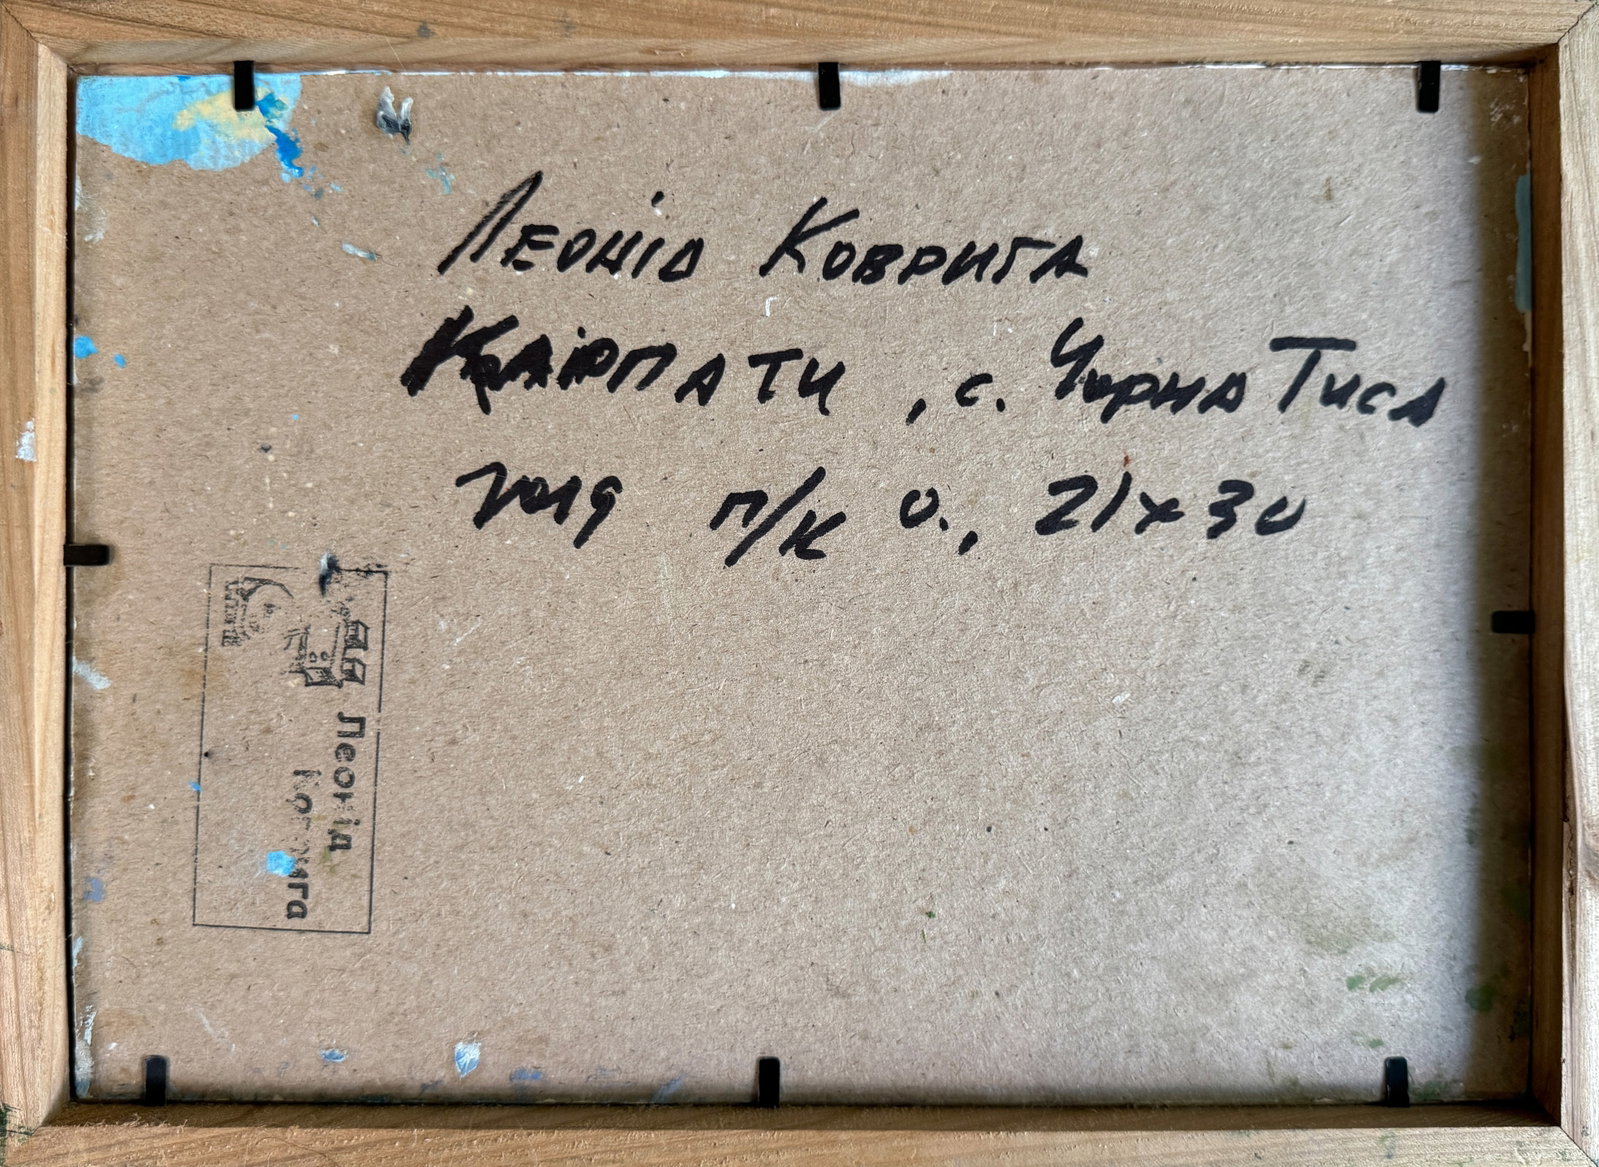 Леонід Коврига
Карпати, с. Чорна Тиса
2019 п/к о., 21х30
Леонід
Коврига